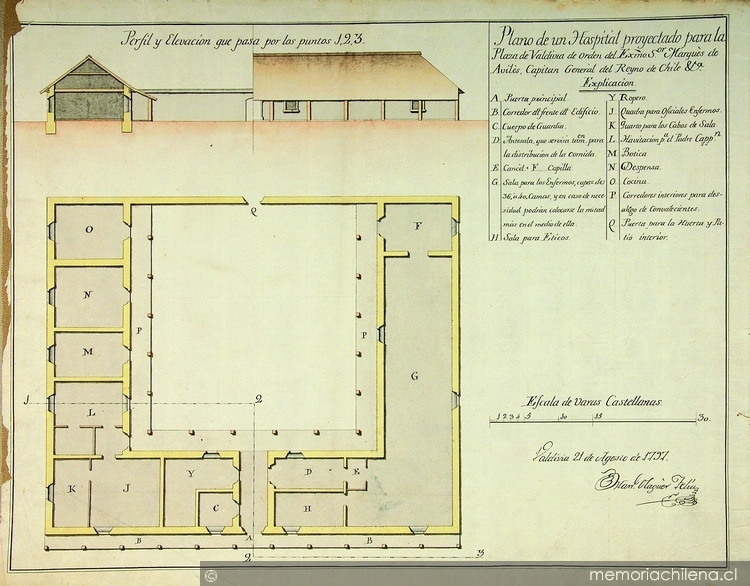 Perfil y Elevacion que pasa por los puntos 1,2,3.
Plano de un Hospital proyectado para la
Plaza de Valdivia de orden del Exmo Sor. Marques de
Avilés, Capitan General del Reyno de Chile &a.
Explicacion.
A Puerta principal
B Corredor all frente all Edificio.
C Cuerpo de Guardia.
D Antesala, que servirá tamen. para
la distribucion de la comida.
E Cancel. F Capilla.
G Sala para los Enfermos, capaz de
36, à 40, Camas, y en caso de nece-
sidad podrán colocarse la mitad
mas en el medio de ella.
H Sala para Eticos.
Y Ropero.
J Quadra para Oficiales Enfermos.
K Quarto para los Cabos de Sala.
L Havitacion pa. el Padre Cappn.
M Botica
N Despensa.
O Cocina.
P Corredores interiores para des-
ahogo de Convalecientes.
Q Puerta para la Huerta y Pa-
tio interior.
Q
O
F
N
P
P
M
G
1
2
L
K
J
Y
C
D
E
H
B
A
B
2
3
Escala de varas Castellanas.
1 2 3 4 5 10 15 30.
Valdivia 21 de Agosto de 1797.
Manl. Olaguer Feliu
© memoriachilena.cl